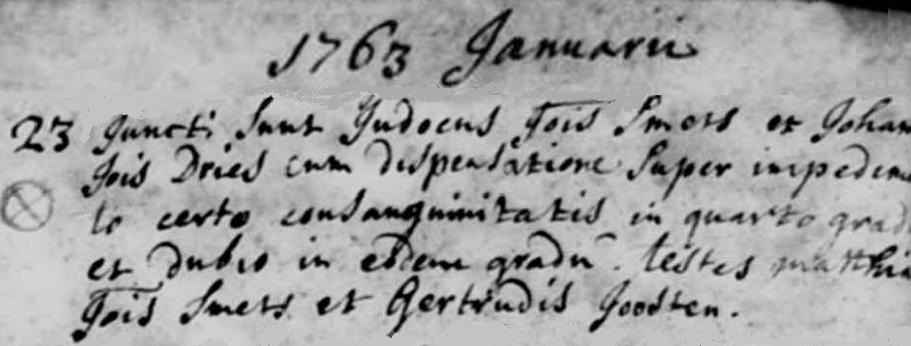 1763 Januarii
23 Juncti sunt Judocus Jois Smets et Johan
Jois Dries cum dispensatione super impedime
to certo consanguinitatis in quarto grad
et dubio in eodem gradu. testes Matthia
Jois Smets et Gertrudis Joosten.